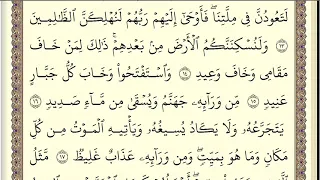 لَتَعُودُنَّ فِي مِلَّتِنَا ۖ فَأَوْحَىٰ إِلَيْهِمْ رَبُّهُمْ لَنُهْلِكَنَّ الظَّالِمِينَ
١٣ وَلَنُسْكِنَنَّكُمُ الْأَرْضَ مِنْ بَعْدِهِمْ ۚ ذَٰلِكَ لِمَنْ خَافَ
مَقَامِي وَخَافَ وَعِيدِ ١٤ وَاسْتَفْتَحُوا وَخَابَ كُلُّ جَبَّارٍ
عَنِيدٍ ١٥ مِنْ وَرَائِهِ جَهَنَّمُ وَيُسْقَىٰ مِنْ مَاءٍ صَدِيدٍ ١٦
يَتَجَرَّعُهُ وَلَا يَكَادُ يُسِيغُهُ وَيَأْتِيهِ الْمَوْتُ مِنْ كُلِّ
مَكَانٍ وَمَا هُوَ بِمَيِّتٍ ۖ وَمِنْ وَرَائِهِ عَذَابٌ غَلِيظٌ ١٧ مَثَلُ